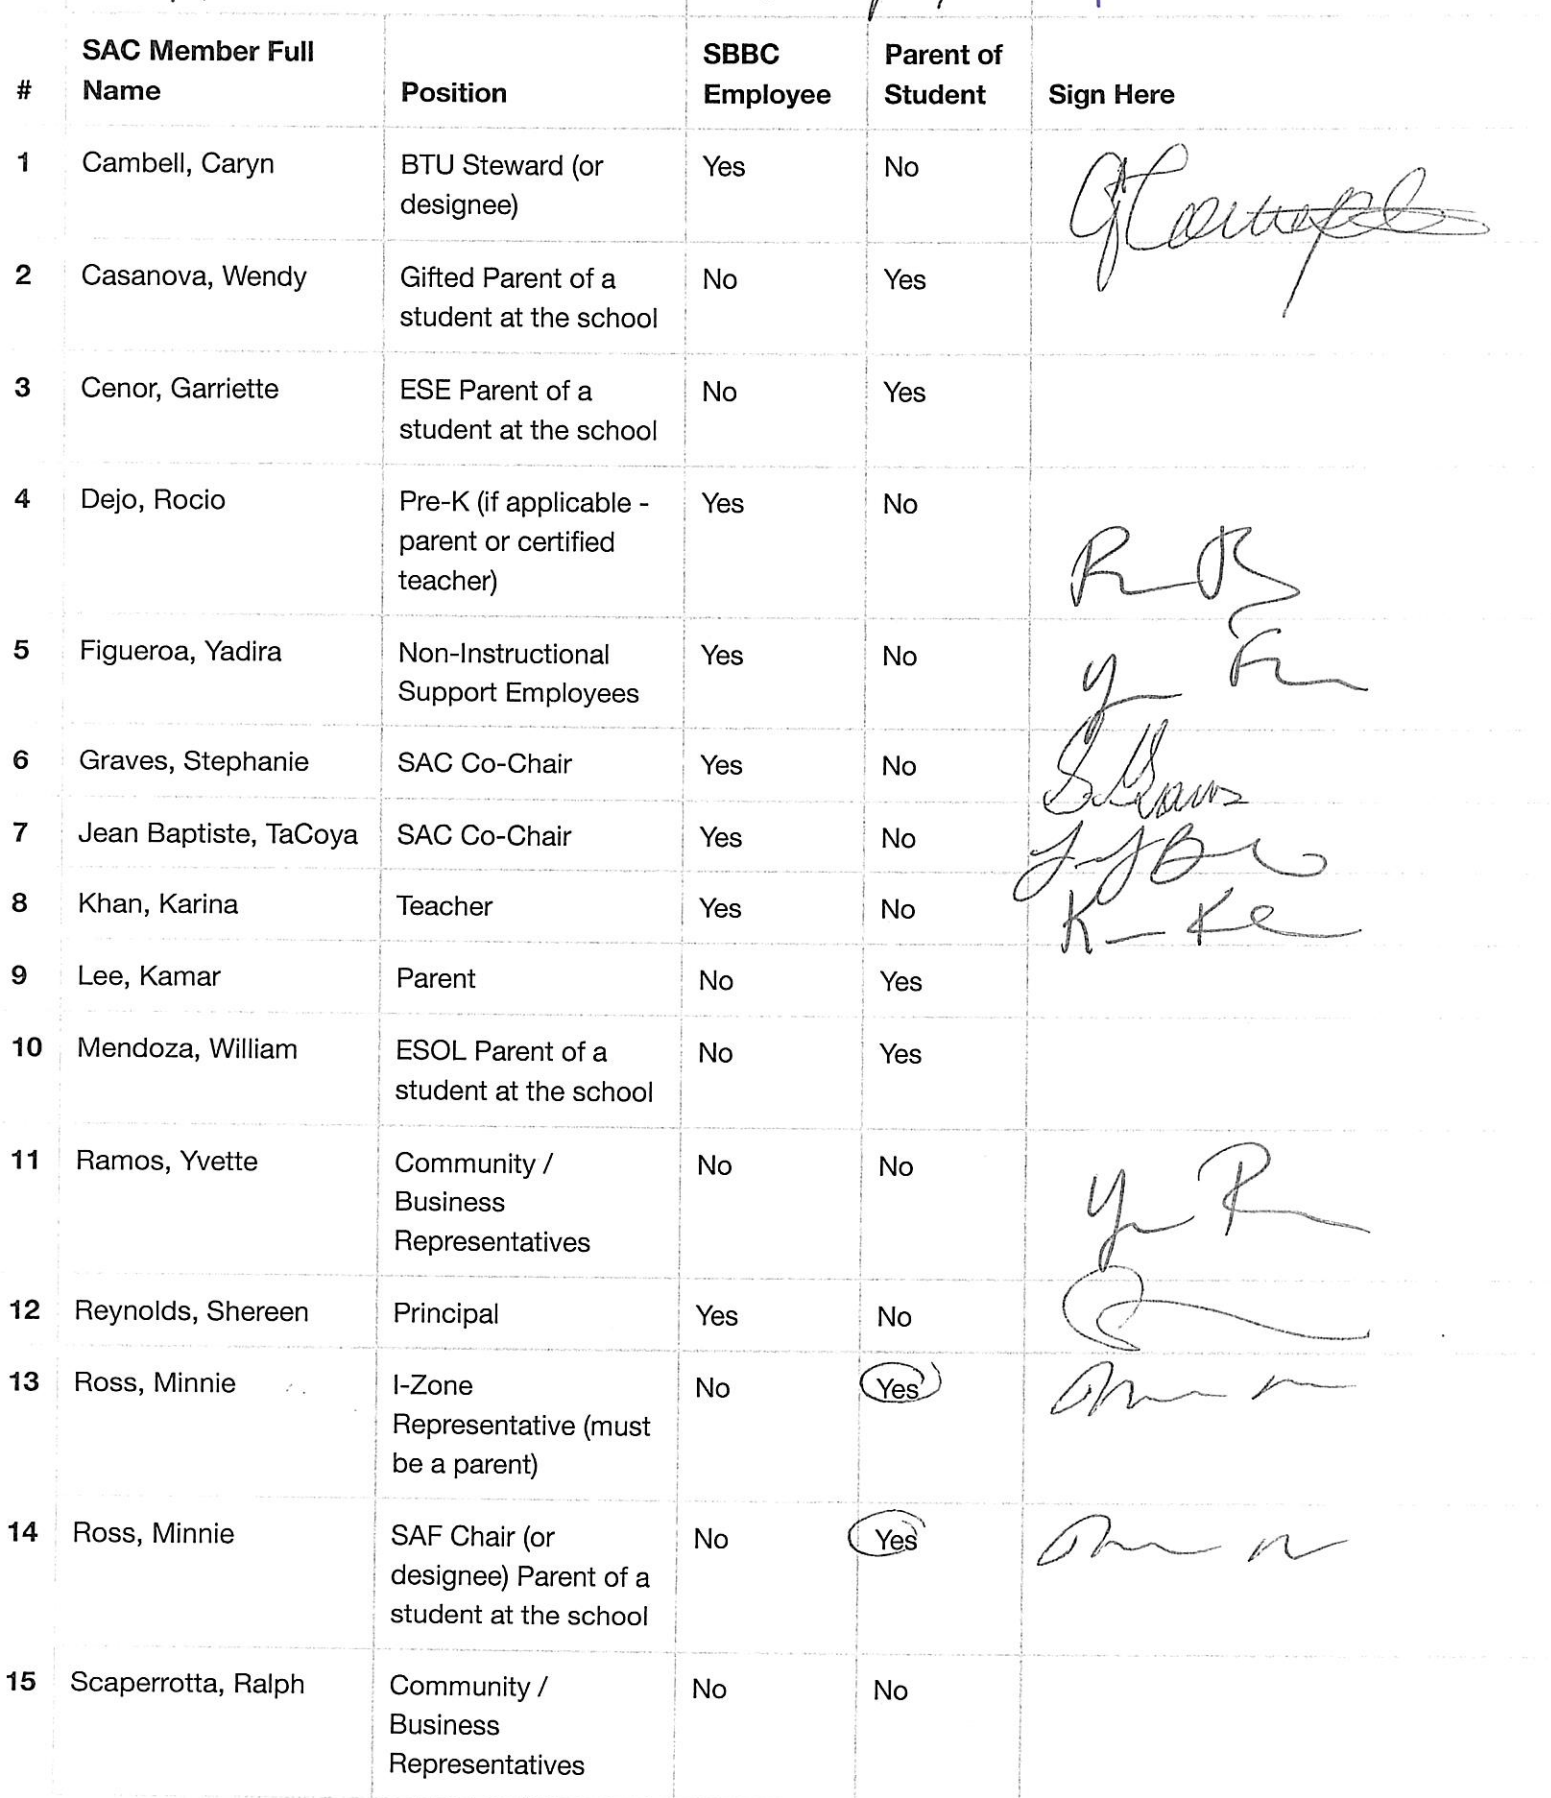 SAC Member Full SBBC Parent of
# Name Position Employee Student Sign Here
1 Cambell, Caryn BTU Steward (or Yes No
designee)
2 Casanova, Wendy Gifted Parent of a No Yes
student at the school
3 Cenor, Garriette ESE Parent of a No Yes
student at the school
4 Dejo, Rocio Pre-K (if applicable - Yes No
parent or certified
teacher)
5 Figueroa, Yadira Non-Instructional Yes No
Support Employees
6 Graves, Stephanie SAC Co-Chair Yes No
7 Jean Baptiste, TaCoya SAC Co-Chair Yes No
8 Khan, Karina Teacher Yes No
9 Lee, Kamar Parent No Yes
10 Mendoza, William ESOL Parent of a No Yes
student at the school
11 Ramos, Yvette Community / No No
Business
Representatives
12 Reynolds, Shereen Principal Yes No
13 Ross, Minnie I-Zone No Yes
Representative (must
be a parent)
14 Ross, Minnie SAF Chair (or No Yes
designee) Parent of a
student at the school
15 Scaperrotta, Ralph Community / No No
Business
Representatives